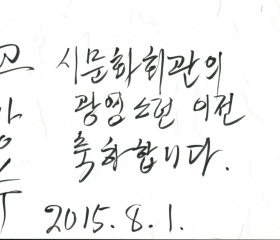 시문화회관의
광영스런 이전
축하합니다.
2015. 8. 1.